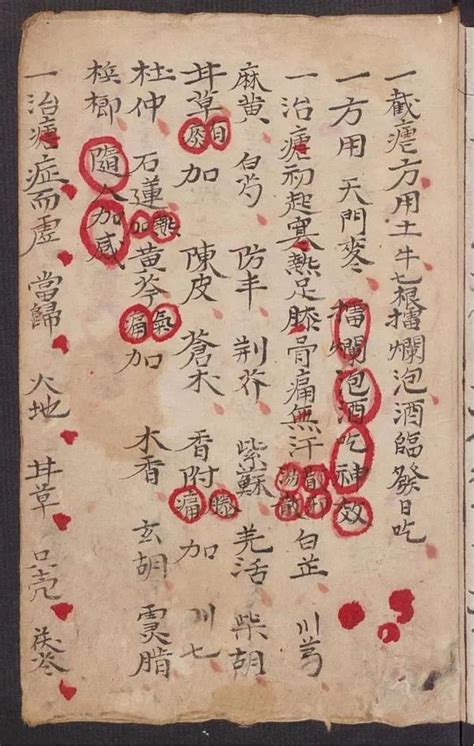 一截瘧方用土牛七根擂爛泡酒臨發日吃
一方用天門麥冬擂爛泡酒吃神效
一治瘧初起寒熱足膝骨痛無汗白芷川芎
麻黄白芍防丰荆芥紫蘇羌活柴胡
甘草加陳皮蒼木香附膝痛加川七
杜仲石蓮熱加黄芩氣痛加木香玄胡灵腊
梹榔隨人加咸
一治瘧症而虛當歸大地甘草只壳茯苓